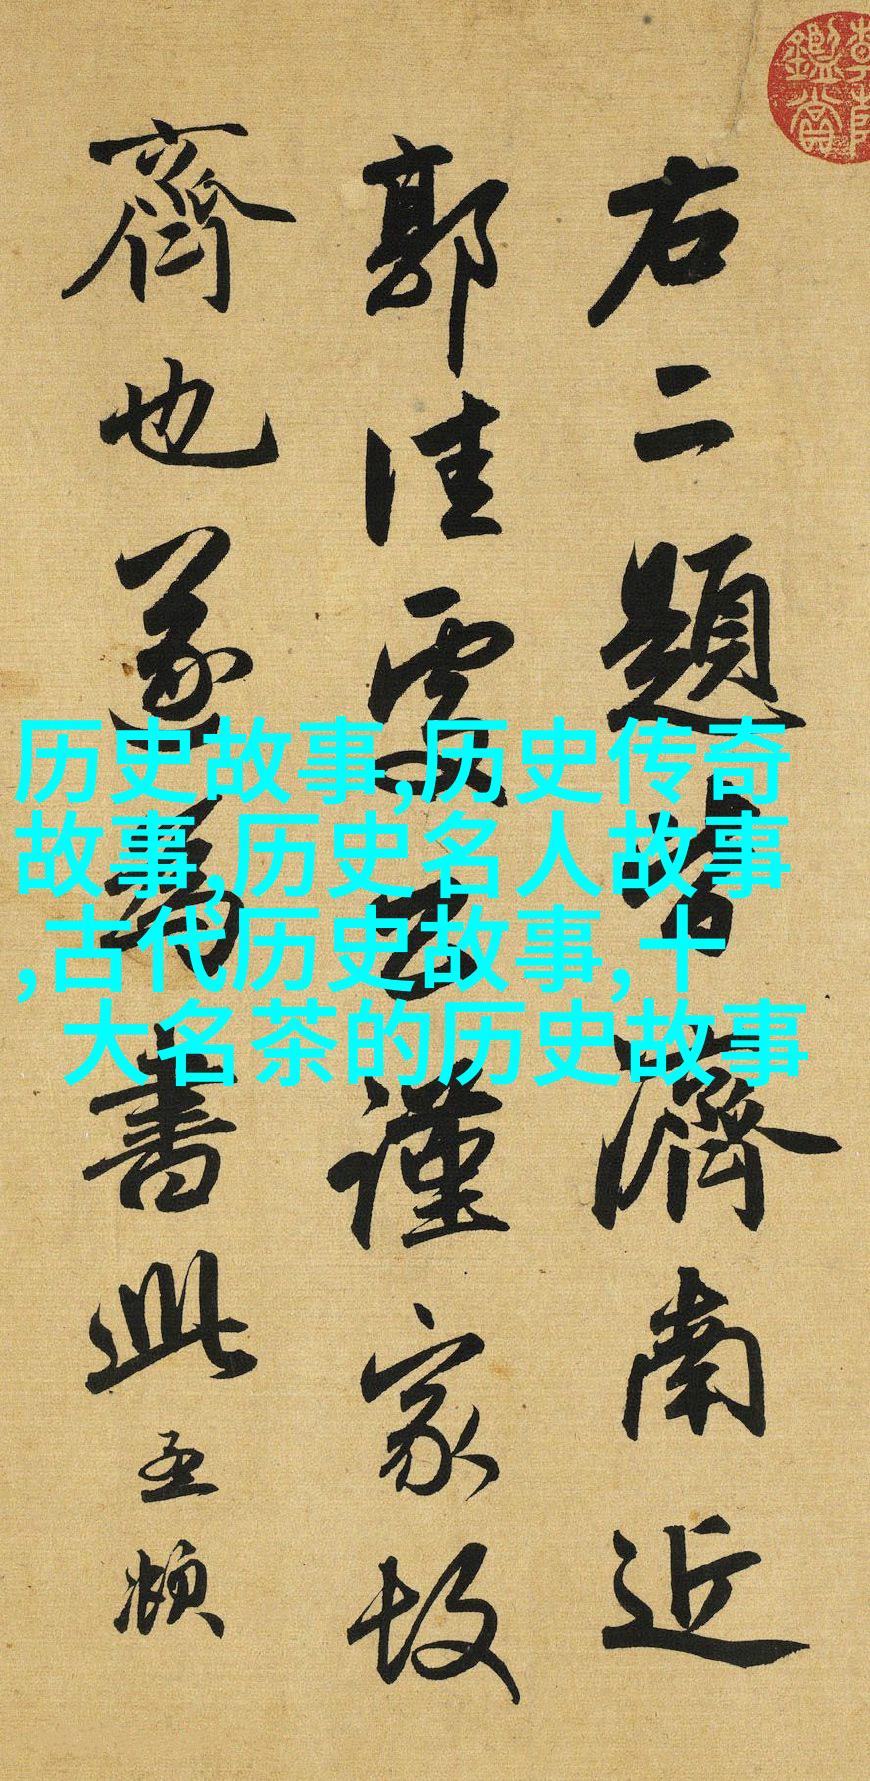 右二題皆濟南近
郭佳處謹家故
齊也遂為書此孟頫
鑑賞
历史故事,历史传奇
故事,历史名人故事
,古代历史故事,十
大名茶的历史故事